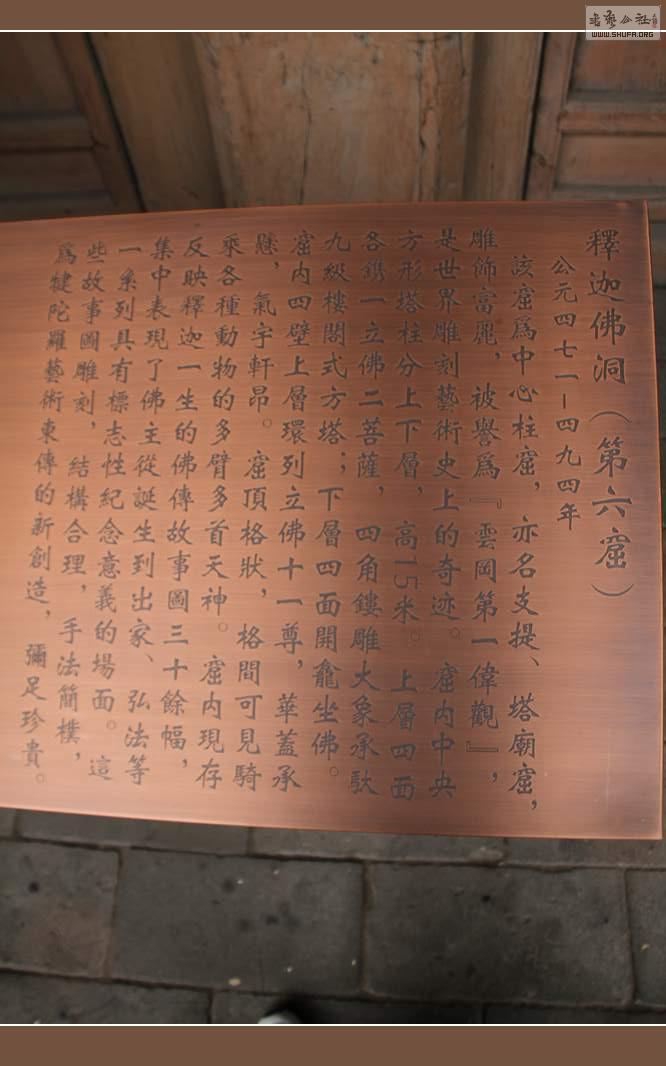 釋迦佛洞（第六窟）
公元四七一－四九四年
該窟爲中心柱窟，亦名支提、塔廟窟，
雕飾富麗，被譽爲『雲岡第一偉觀』，
是世界雕刻藝術史上的奇迹。窟内中央
方形塔柱分上下層，高15米。上層四面
各鐫一立佛二菩薩，四角鏤雕大象承馱
九級樓閣式方塔；下層四面開龕坐佛。
窟内四壁上層環列立佛十一尊，華蓋承
懸，氣宇軒昂。窟頂格狀，格間可見騎
乘各種動物的多臂多首天神。窟内現存
反映釋迦一生的佛傳故事圖三十餘幅，
集中表現了佛主從誕生到出家、弘法等
一系列具有標志性紀念意義的場面。這
些故事圖雕刻，結構合理，手法簡樸，
爲犍陀羅藝術東傳的新創造，彌足珍貴。
書藝公社
WWW.SHUFA.ORG